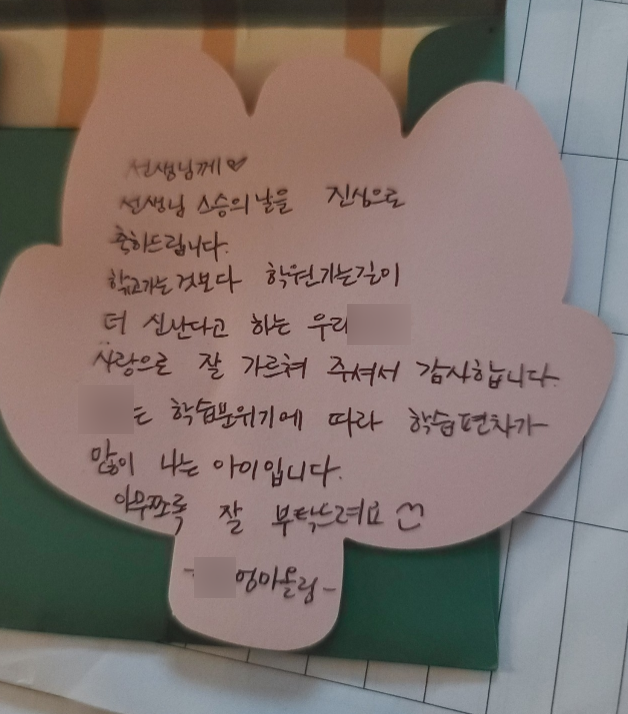 선생님께♡
선생님 스승의날을 진심으로
축하드립니다.
학교가는것보다 학원가는길이
더 신난다고 하는 우리
사랑으로 잘 가르쳐 주셔서 감사합니다.
는 학습분위기에 따라 학습편차가
많이 나는 아이입니다.
아무쪼록 잘 부탁드려요
- 엄마올림-